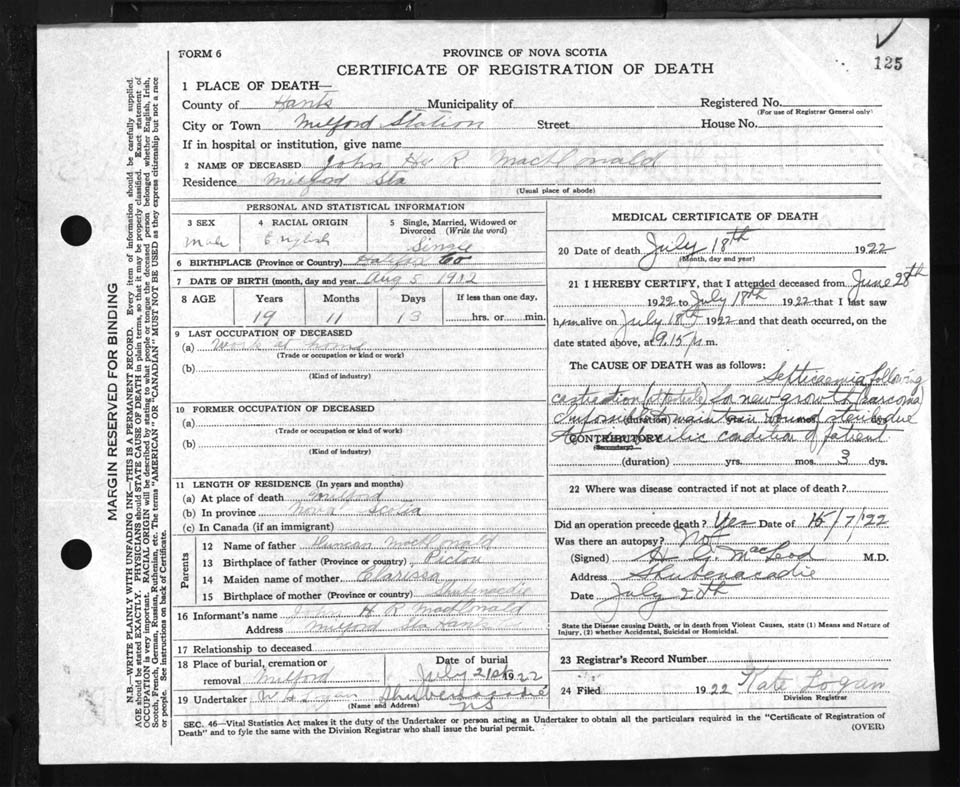 FORM 6
PROVINCE OF NOVA SCOTIA
CERTIFICATE OF REGISTRATION OF DEATH
125
1 PLACE OF DEATH—
County of Hants Municipality of Registered No.
(For use of Registrar General only)
City or Town Milford Station Street House No.
If in hospital or institution, give name
2 NAME OF DECEASED John H R MacDonald
Residence Milford Sta
(Usual place of abode)
PERSONAL AND STATISTICAL INFORMATION
3 SEX
Male
4 RACIAL ORIGIN
English
5 Single, Married, Widowed or Divorced (Write the word)
Single
6 BIRTHPLACE (Province or Country) Halifax Co
7 DATE OF BIRTH (month, day and year) Aug 5 1902
8 AGE Years Months Days If less than one day,
19 11 13 hrs. or min.
9 LAST OCCUPATION OF DECEASED
(a) Work at home
(Trade or occupation or kind or work)
(b)
(Kind of industry)
10 FORMER OCCUPATION OF DECEASED
(a)
(Trade or occupation or kind of work)
(b)
(Kind of industry)
11 LENGTH OF RESIDENCE (In years and months)
(a) At place of death Milford
(b) In province Nova Scotia
(c) In Canada (if an immigrant)
Parents
12 Name of father Duncan MacDonald
13 Birthplace of father (Province or country) Pictou
14 Maiden name of mother Clarissa
15 Birthplace of mother (Province or Country) Shubenacadie
16 Informant's name John H R MacDonald
Address Milford Sta Hants
17 Relationship to deceased
18 Place of burial, cremation or removal Milford
Date of burial
July 21st 1922
19 Undertaker W H Logan Shubenacadie
NS
(Name and Address)
MEDICAL CERTIFICATE OF DEATH
20 Date of death July 18th 1922
(Month, day and year)
21 I HEREBY CERTIFY, that I attended deceased from June 28th
1922 to July 18th 1922 that I last saw
h im alive on July 18th 1922 and that death occurred, on
the date stated above, at 9.15 p m.
The CAUSE OF DEATH was as follows:
Septicaemia following
castration for new growth (sarcoma)
Impossible to maintain wound sterile due
condition of patient
(duration) yrs. mos. ds.
CONTRIBUTORY
(Secondary)
(duration) yrs. mos. 3 dys.
22 Where was disease contracted if not at place of death?
Did an operation precede death? Yes Date of 15/7/22
Was there an autopsy? No
(Signed) H. G. MacLeod M.D.
Address Shubenacadie
Date July 20th
State the Disease causing Death, or in death from Violent Causes, state (1) Means and Nature of Injury, (2) whether Accidental, Suicidal or Homicidal.
23 Registrar's Record Number
24 Filed 1922 Kate Logan
Division Registrar
SEC. 46—Vital Statistics Act makes it the duty of the Undertaker or person acting as Undertaker to obtain all the particulars required in the "Certificate of Registration of
Death" and to fyle the same with the Division Registrar who shall issue the burial permit.
(OVER)
MARGIN RESERVED FOR BINDING
N.B.—WRITE PLAINLY WITH UNFADING INK—THIS IS A PERMANENT RECORD. Every item of information should be carefully supplied.
AGE should be stated EXACTLY. PHYSICIANS should STATE CAUSE OF DEATH in plain terms, so that it may be properly classified. Exact statement of
OCCUPATION is very important. RACIAL ORIGIN will be described by stating to what people or tongue the deceased person belonged whether English, Irish,
Scotch, French, German, Russian, Ruthenian, etc. The terms "AMERICAN" OR "CANADIAN" MUST NOT BE USED as they express citizenship but not a race
or people. See instructions on back of Certificate.